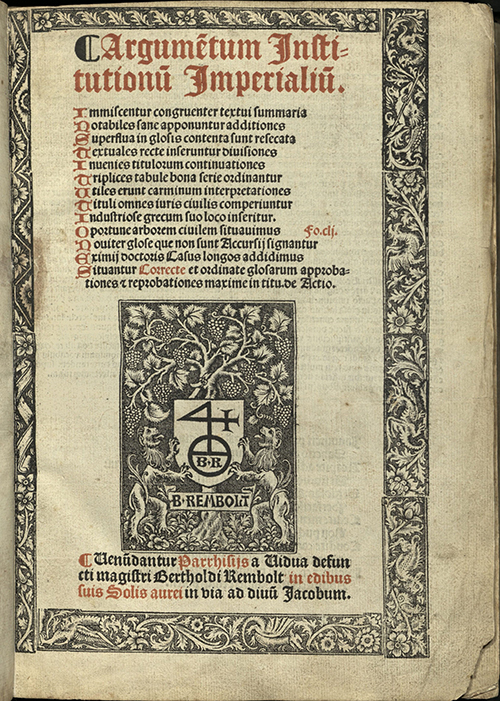 ⸿Argumētum Insti-
tutionū Imperialiū.
Immiscentur congruenter textui summaria
Notabiles sane apponuntur additiones
Superflua in glosis contenta sunt resecata
Textuales recte inseruntur diuisiones
Inuenies titulorum continuationes
Triplices tabule bona serie ordinantur
Utiles erunt carminum interpretationes
Tituli omnes iuris ciuilis comperiuntur
Industriose grecum suo loco inseritur.
Oportune arborem ciuilem situauimus Fo.clj.
Nouiter glose que non sunt Accursij signantur
Eximij doctoris Casus longos addidimus
Situantur Correcte et ordinate glosarum approba-
tiones ⁊ reprobationes maxime in titu.de Actio.
4 1
B R
B·REMBOLT
⸿Uenūdantur Parrhisijs a Uidua defun
cti magistri Bertholdi Rembolt in edibus
suis Solis aurei in via ad diuū Jacobum.